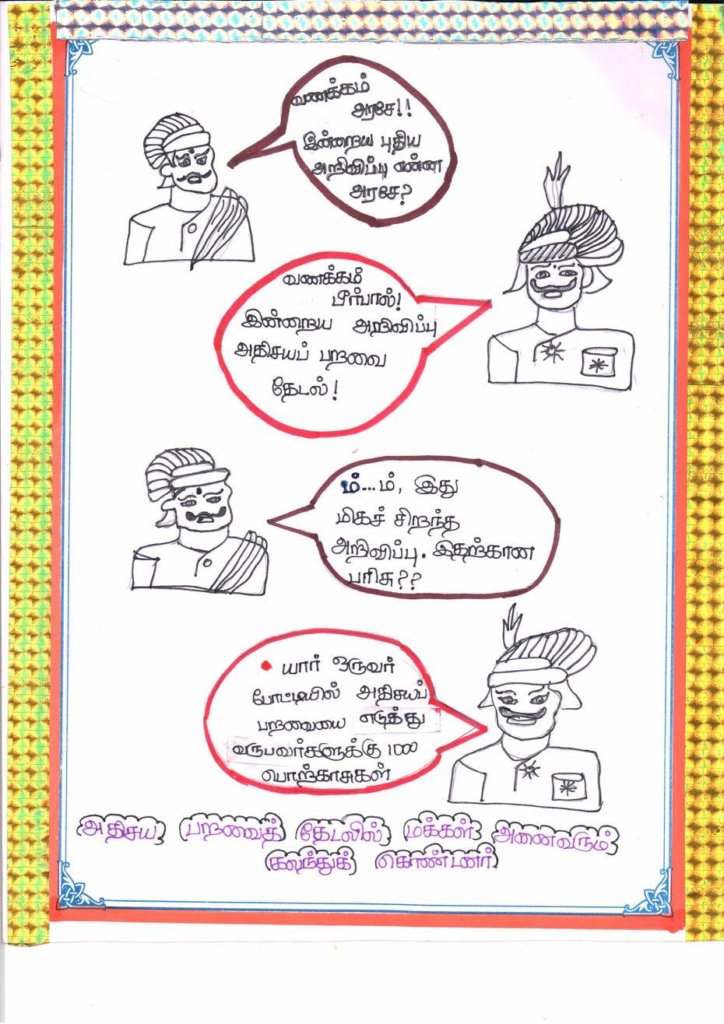 வணக்கம்
அரசே!!
இன்றைய புதிய
அறிவிப்பு என்ன
அரசே?
வணக்கம்
பீர்பால்!
இன்றைய அறிவிப்பு
அதிசயப் பறவை
தேடல்!
ம்...ம், இது
மிகச் சிறந்த
அறிவிப்பு. இதற்கான
பரிசு??
• யார் ஒருவர்
போட்டியில் அதிசயப்
பறவையை எடுத்து
வருபவர்களுக்கு 1000
பொற்காசுகள்
அதிசய பறவைத் தேடலில் மக்கள் அனைவரும்
கலந்துக் கொண்டனர்